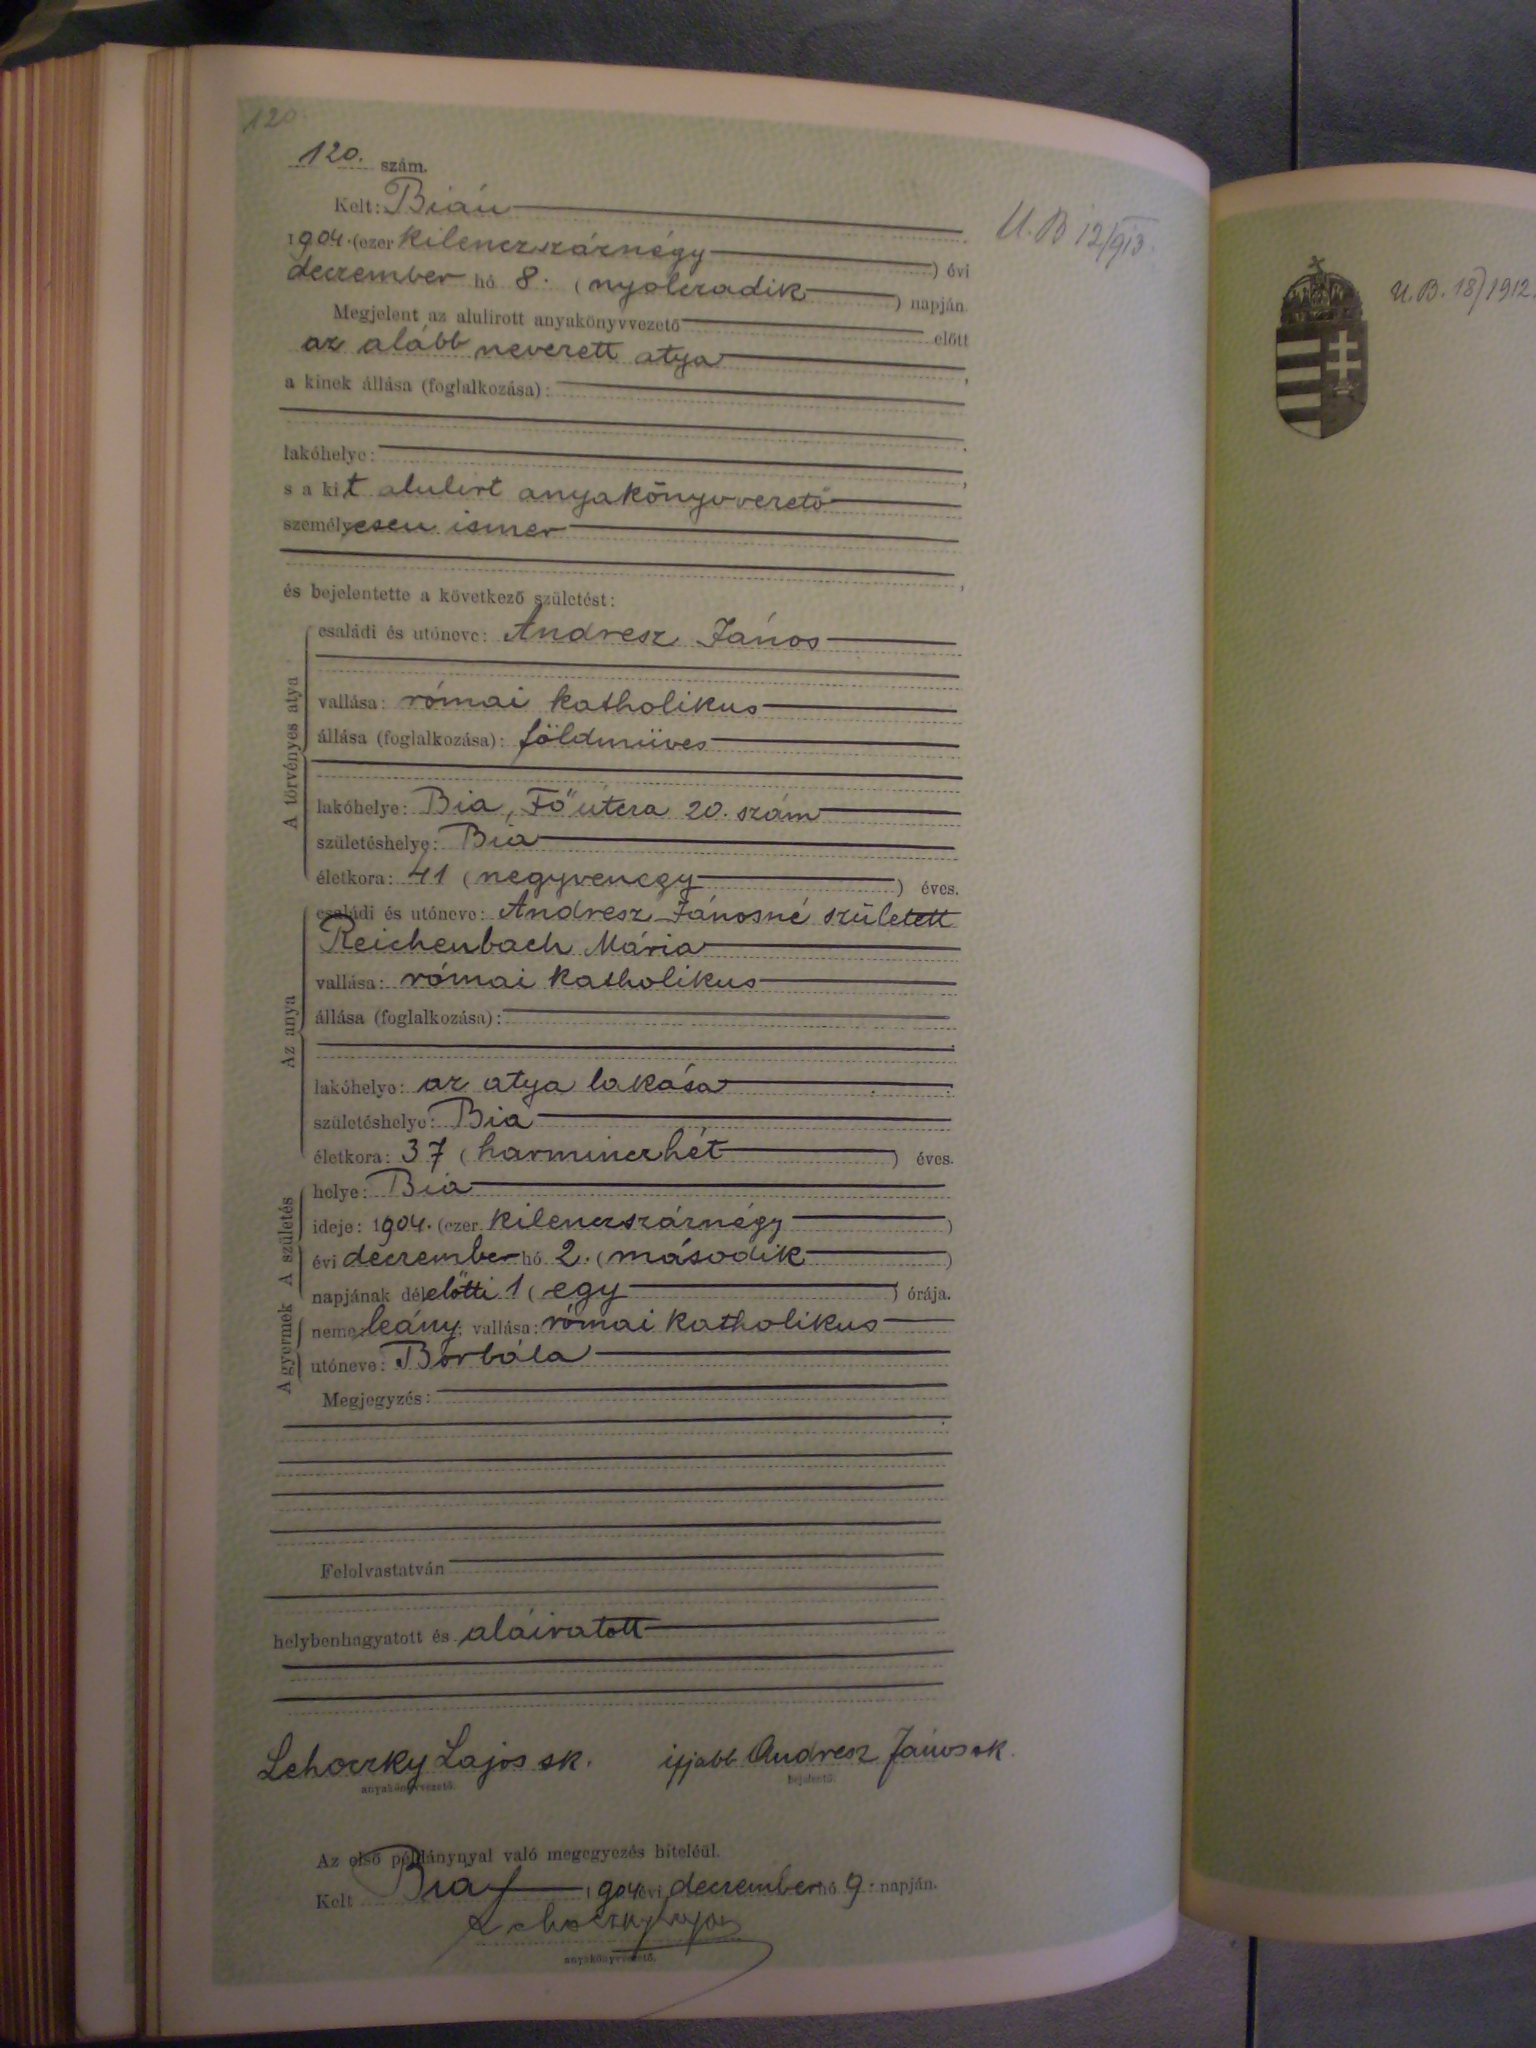 120
120. szám.
Kelt: Bián
1904. (ezer kilenczszáznégy) évi
deczember hó 8. (nyolczadik) napján.
Megjelent az alulirott anyakönyvvezető előtt
az alább nevezett atya,
a kinek állása (foglalkozása):
lakóhelye:
s a kit alulirt anyakönyvvezető
személyesen ismer
és bejelentette a következő születést:
A törvényes atya
családi és utóneve: Andresz János
vallása: római katholikus
állása (foglalkozása): földmüves
lakóhelye: Bia, Fő útcza 20. szám
születéshelye: Bia
életkora: 41 (negyvenegy) éves.
Az anya
családi és utóneve: Andresz Jánosné született
Reichenbach Mária
vallása: római katholikus
állása (foglalkozása):
lakóhelye: az atya lakása
születéshelye: Bia
életkora: 37 (harminczhét) éves.
A születés
helye: Bia
ideje: 1904. (ezer kilenczszáznégy)
évi deczember hó 2. (második)
napjának délelőtti 1 (egy) órája.
A gyermek
neme: leány; vallása: római katholikus
utóneve: Borbála
Megjegyzés:
Felolvastatván
helybenhagyatott és aláiratott
Lehoczky Lajos sk. ifjabb Andresz János sk.
anyakönyvvezető. bejelentő.
Az első példánynyal való megegyezés hiteléül.
Kelt Bia, 1904 évi deczember hó 9. napján.
Lehoczky Lajos
anyakönyvvezető.
U.B 12/913
U.B. 18/1912.